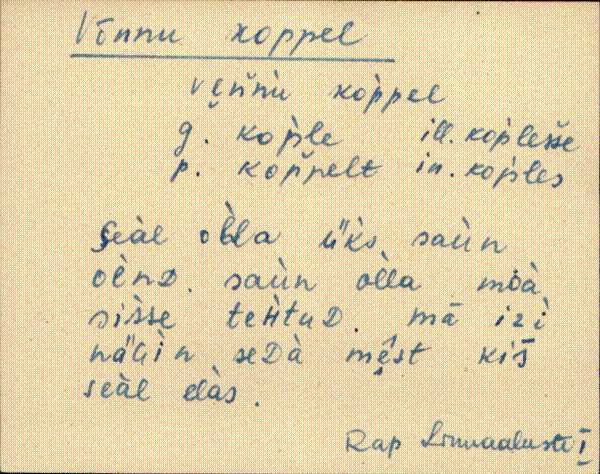 Vinnu koppel
vennu koppel
g. kople ill. koplešše
p. koppelt in. koples
seàl òlla üks saùn
oènD. saùn òlla moà
sìsse tehtuD. mā izì
nähìn seDà mêst kis
seàl elàs.
Rap Linnaaluste I